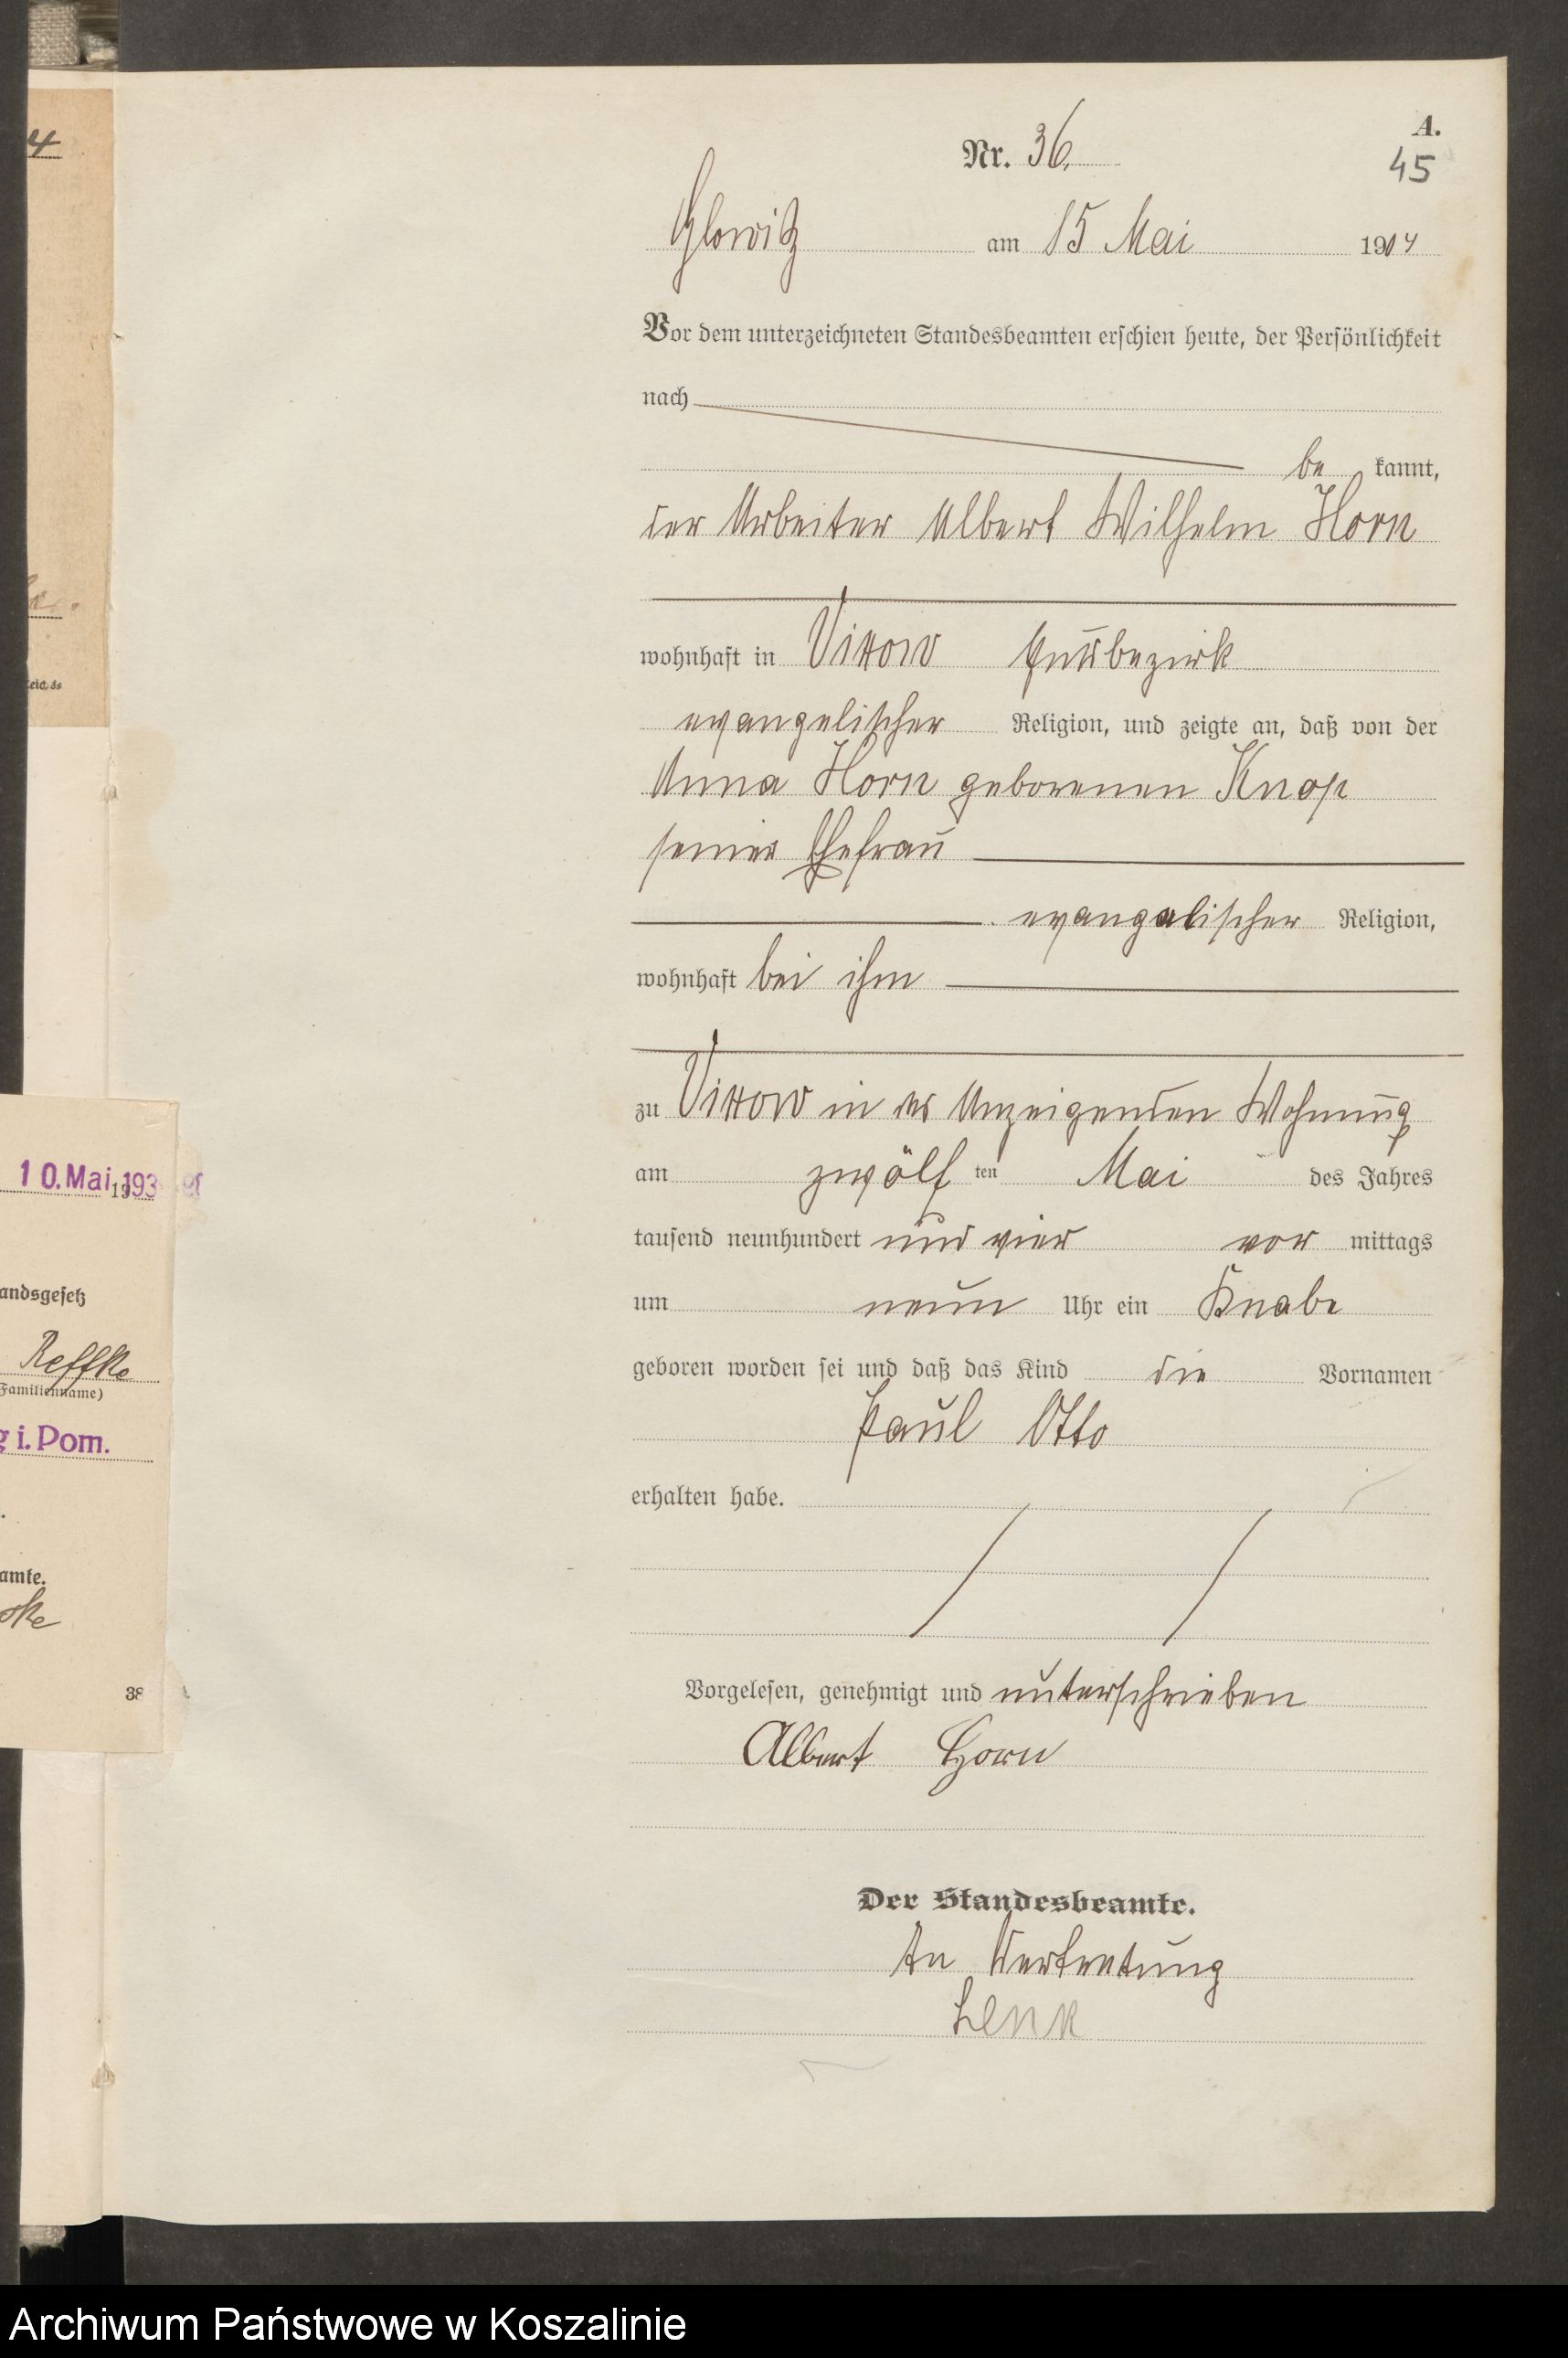 A.
Nr. 36.
45
Glowitz am 15 Mai 1904
Vor dem unterzeichneten Standesbeamten erschien heute, der Persönlichkeit
nach
be kannt,
der Arbeiter Albert Wilhelm Horn
wohnhaft in Vixow Gutsbezirk
evangelischer Religion, und zeigte an, daß von der
Anna Horn geborenen Knop
seiner Ehefrau
evangelischer Religion,
wohnhaft bei ihm
zu Vixow in des Anzeigenden Wohnung
am zwölf ten Mai des Jahres
tausend neunhundert und vier vor mittags
um neun Uhr ein Knabe
geboren worden sei und daß das Kind die Vornamen
Paul Otto
erhalten habe.
Vorgelesen, genehmigt und unterschrieben
Albert Horn
Der Standesbeamte.
In Vertretung
Lenk
4
10. Mai 193
andsgesetz
Reffke
Familienname)
g i. Pom.
amte.
38
Archiwum Państwowe w Koszalinie